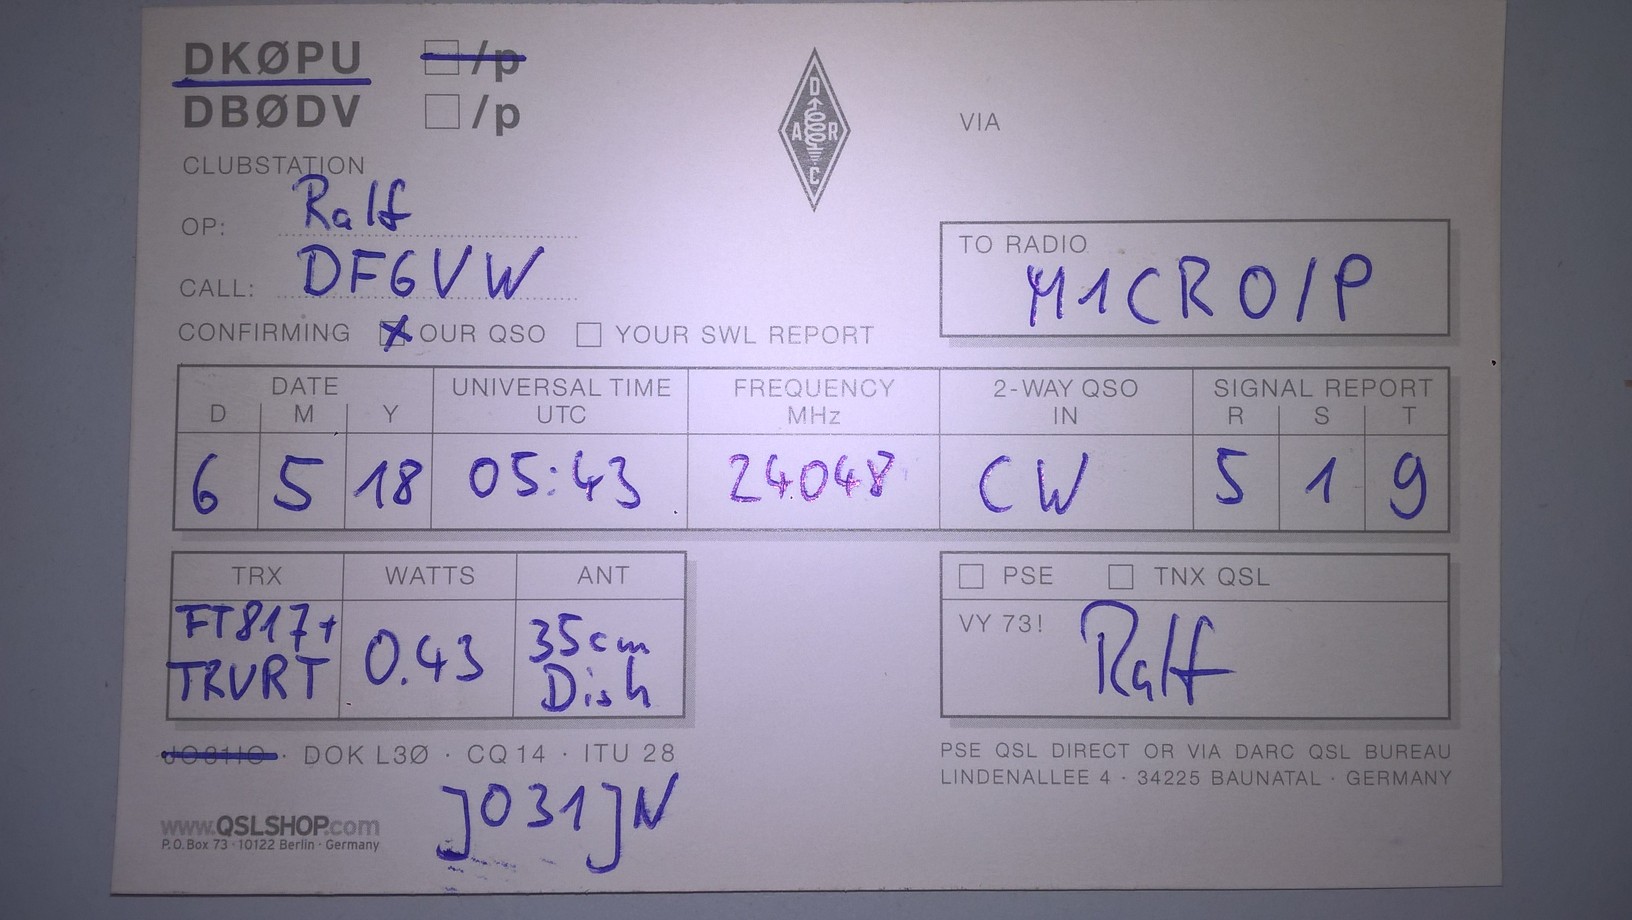 DKØPU /p
DBØDV /p
CLUBSTATION
OP: Ralf
CALL: DF6VW
CONFIRMING OUR QSO YOUR SWL REPORT
DARC
VIA
TO RADIO
M1CRO/P
DATE UNIVERSAL TIME FREQUENCY 2-WAY QSO SIGNAL REPORT
D M Y UTC MHz IN R S T
6 5 18 05:43 24048 CW 5 1 9
TRX WATTS ANT
FT817+ 0.43 35cm
TRVRT Dish
PSE TNX QSL
VY 73! Ralf
JO31IO · DOK L3Ø · CQ 14 · ITU 28
JO31JN
PSE QSL DIRECT OR VIA DARC QSL BUREAU
LINDENALLEE 4 · 34225 BAUNATAL · GERMANY
www.QSLSHOP.com
P.O. Box 73 · 10122 Berlin · Germany